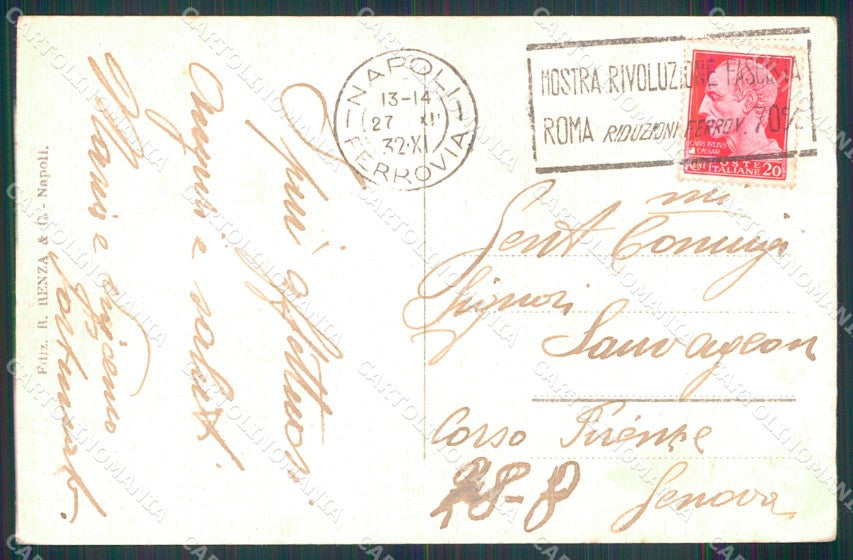 Ediz. R. RENZA & C. - Napoli.
Spini affettuosi
Auguri e saluti
Mario e
NAPOLI
13-14
27 XII
32·XI
FERROVIA
MOSTRA RIVOLUZIONE FASCISTA
ROMA RIDUZIONI FERROV. 70%
CAIVS IVLIVS
CAESAR
POSTE
ITALIANE 20
Gent mi Coniugi
Signori
Sauvageon
Corso Firenze
28-8
Genova
CARTOLINOMANIA